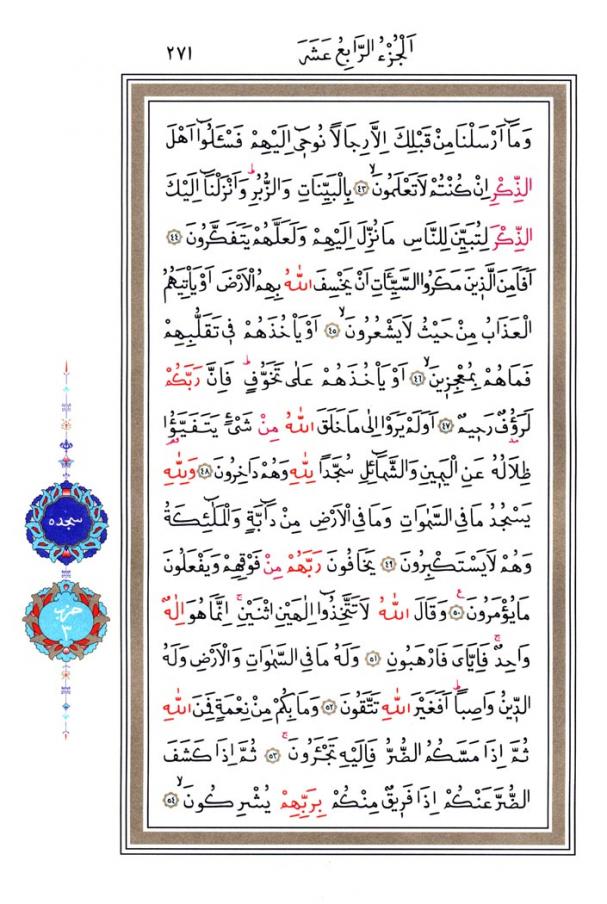 اَلْجُزْءُ الرَّابِعُ عَشَرَ
٢٧١
وَمَٓا اَرْسَلْنَا مِنْ قَبْلِكَ اِلَّا رِجَالًا نُوحٓى اِلَيْهِمْ فَسْـَٔلُٓوا اَهْلَ
الذِّكْرِ اِنْ كُنْتُمْ لَا تَعْلَمُونَۙ ﴿٤٣﴾ بِالْبَيِّنَاتِ وَالزُّبُرِۜ وَاَنْزَلْنَٓا اِلَيْكَ
الذِّكْرَ لِتُبَيِّنَ لِلنَّاسِ مَا نُزِّلَ اِلَيْهِمْ وَلَعَلَّهُمْ يَتَفَكَّرُونَ ﴿٤٤﴾
اَفَاَمِنَ الَّذ۪ينَ مَكَرُوا السَّيِّـَٔاتِ اَنْ يَخْسِفَ اللّٰهُ بِهِمُ الْاَرْضَ اَوْ يَأْتِيَهُمُ
الْعَذَابُ مِنْ حَيْثُ لَا يَشْعُرُونَۙ ﴿٤٥﴾ اَوْ يَأْخُذَهُمْ ف۪ي تَقَلُّبِهِمْ
فَمَا هُمْ بِمُعْجِز۪ينَۙ ﴿٤٦﴾ اَوْ يَأْخُذَهُمْ عَلٰى تَخَوُّفٍۜ فَاِنَّ رَبَّكُمْ
لَرَؤُ۫فٌ رَح۪يمٌ ﴿٤٧﴾ اَوَلَمْ يَرَوْا اِلٰى مَا خَلَقَ اللّٰهُ مِنْ شَيْءٍ يَتَفَيَّؤُ۬ا
ظِلَالُهُ عَنِ الْيَم۪ينِ وَالشَّمَٓائِلِ سُجَّدًا لِلّٰهِ وَهُمْ دَاخِرُونَ ﴿٤٨﴾ وَلِلّٰهِ
يَسْجُدُ مَا فِي السَّمٰوَاتِ وَمَا فِي الْاَرْضِ مِنْ دَٓابَّةٍ وَالْمَلٰٓئِكَةُ
وَهُمْ لَا يَسْتَكْبِرُونَ ﴿٤٩﴾ يَخَافُونَ رَبَّهُمْ مِنْ فَوْقِهِمْ وَيَفْعَلُونَ
مَا يُؤْمَرُونَ ﴿٥٠﴾ وَقَالَ اللّٰهُ لَا تَتَّخِذُٓوا اِلٰهَيْنِ اثْنَيْنِۚ اِنَّمَا هُوَ اِلٰهٌ
وَاحِدٌۚ فَاِيَّايَ فَارْهَبُونِ ﴿٥١﴾ وَلَهُ مَا فِي السَّمٰوَاتِ وَالْاَرْضِ وَلَهُ
الدّ۪ينُ وَاصِبًاۜ اَفَغَيْرَ اللّٰهِ تَتَّقُونَ ﴿٥٢﴾ وَمَا بِكُمْ مِنْ نِعْمَةٍ فَمِنَ اللّٰهِ
ثُمَّ اِذَا مَسَّكُمُ الضُّرُّ فَاِلَيْهِ تَجْـَٔرُونَۚ ﴿٥٣﴾ ثُمَّ اِذَا كَشَفَ
الضُّرَّ عَنْكُمْ اِذَا فَر۪يقٌ مِنْكُمْ بِرَبِّهِمْ يُشْرِكُونَۙ ﴿٥٤﴾
سجده
حزب
٣